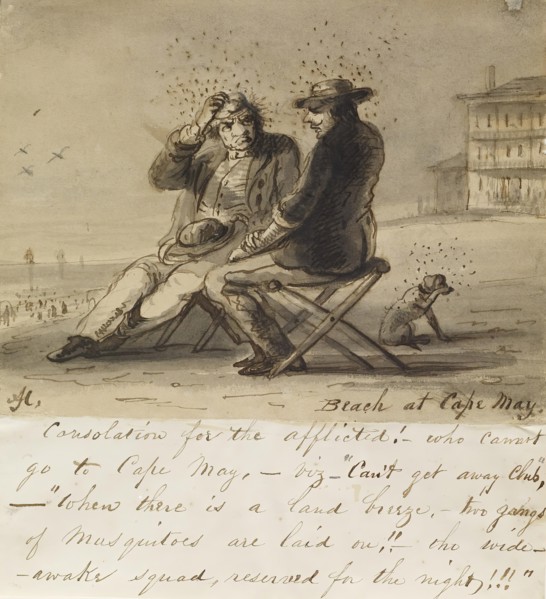 Beach at Cape May.
Consolation for the afflicted! - who cannot
go to Cape May, - viz - "Can't get away Club",
- "When there is a land breeze, - two gangs
of Musquitoes are laid on!! - the wide-
-awake squad, reserved for the night!!!"